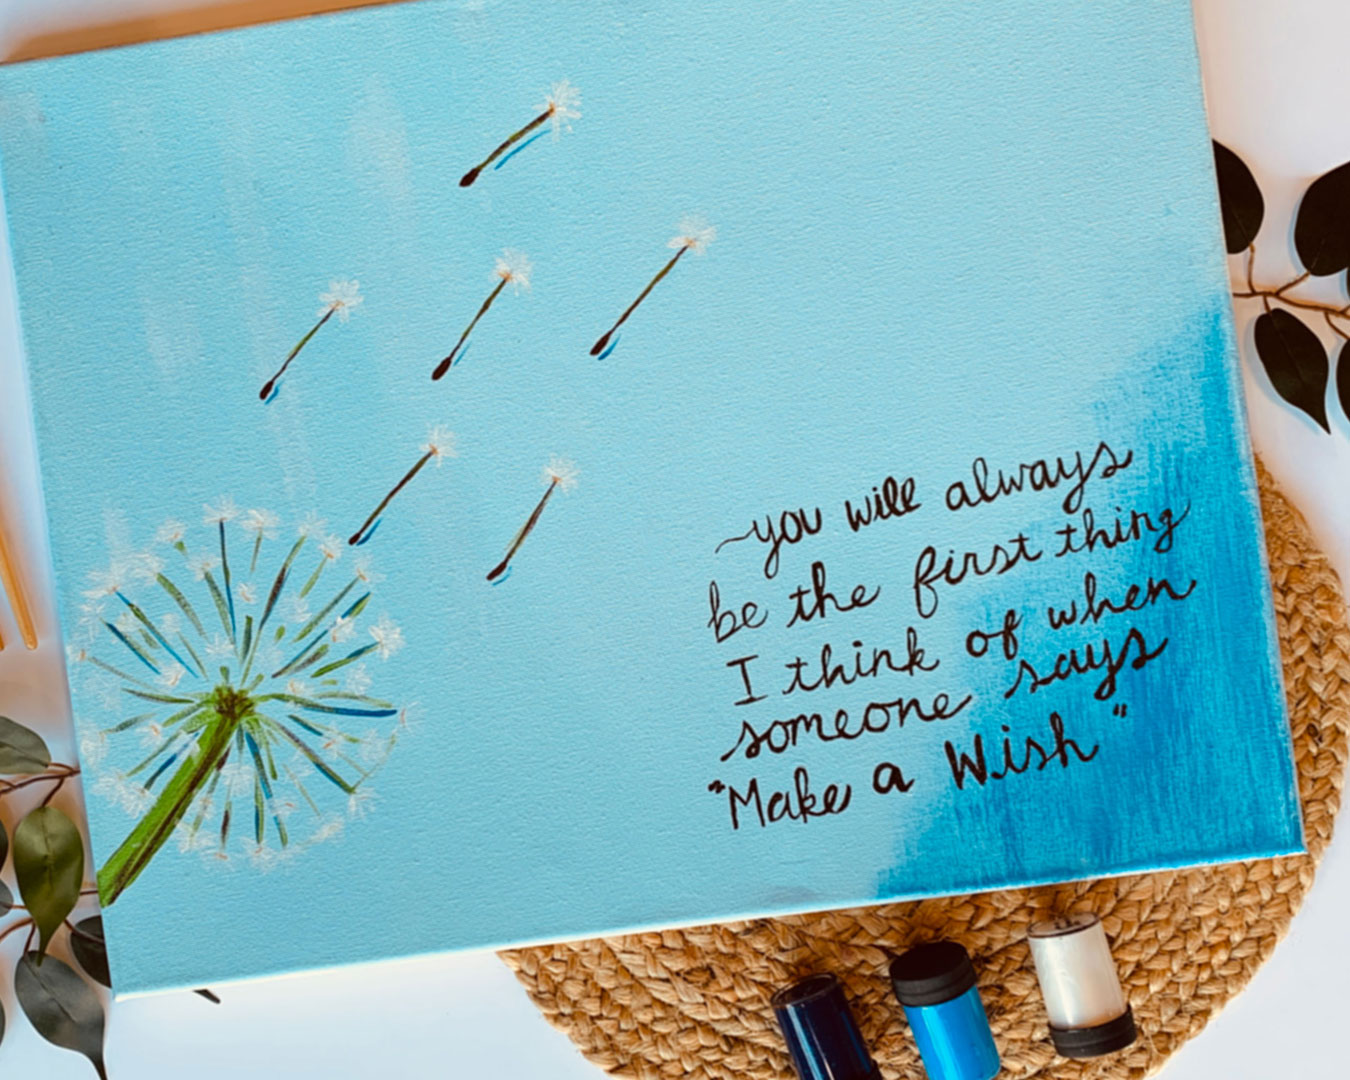 ~you will always
be the first thing
I think of when
someone says
"Make a Wish"